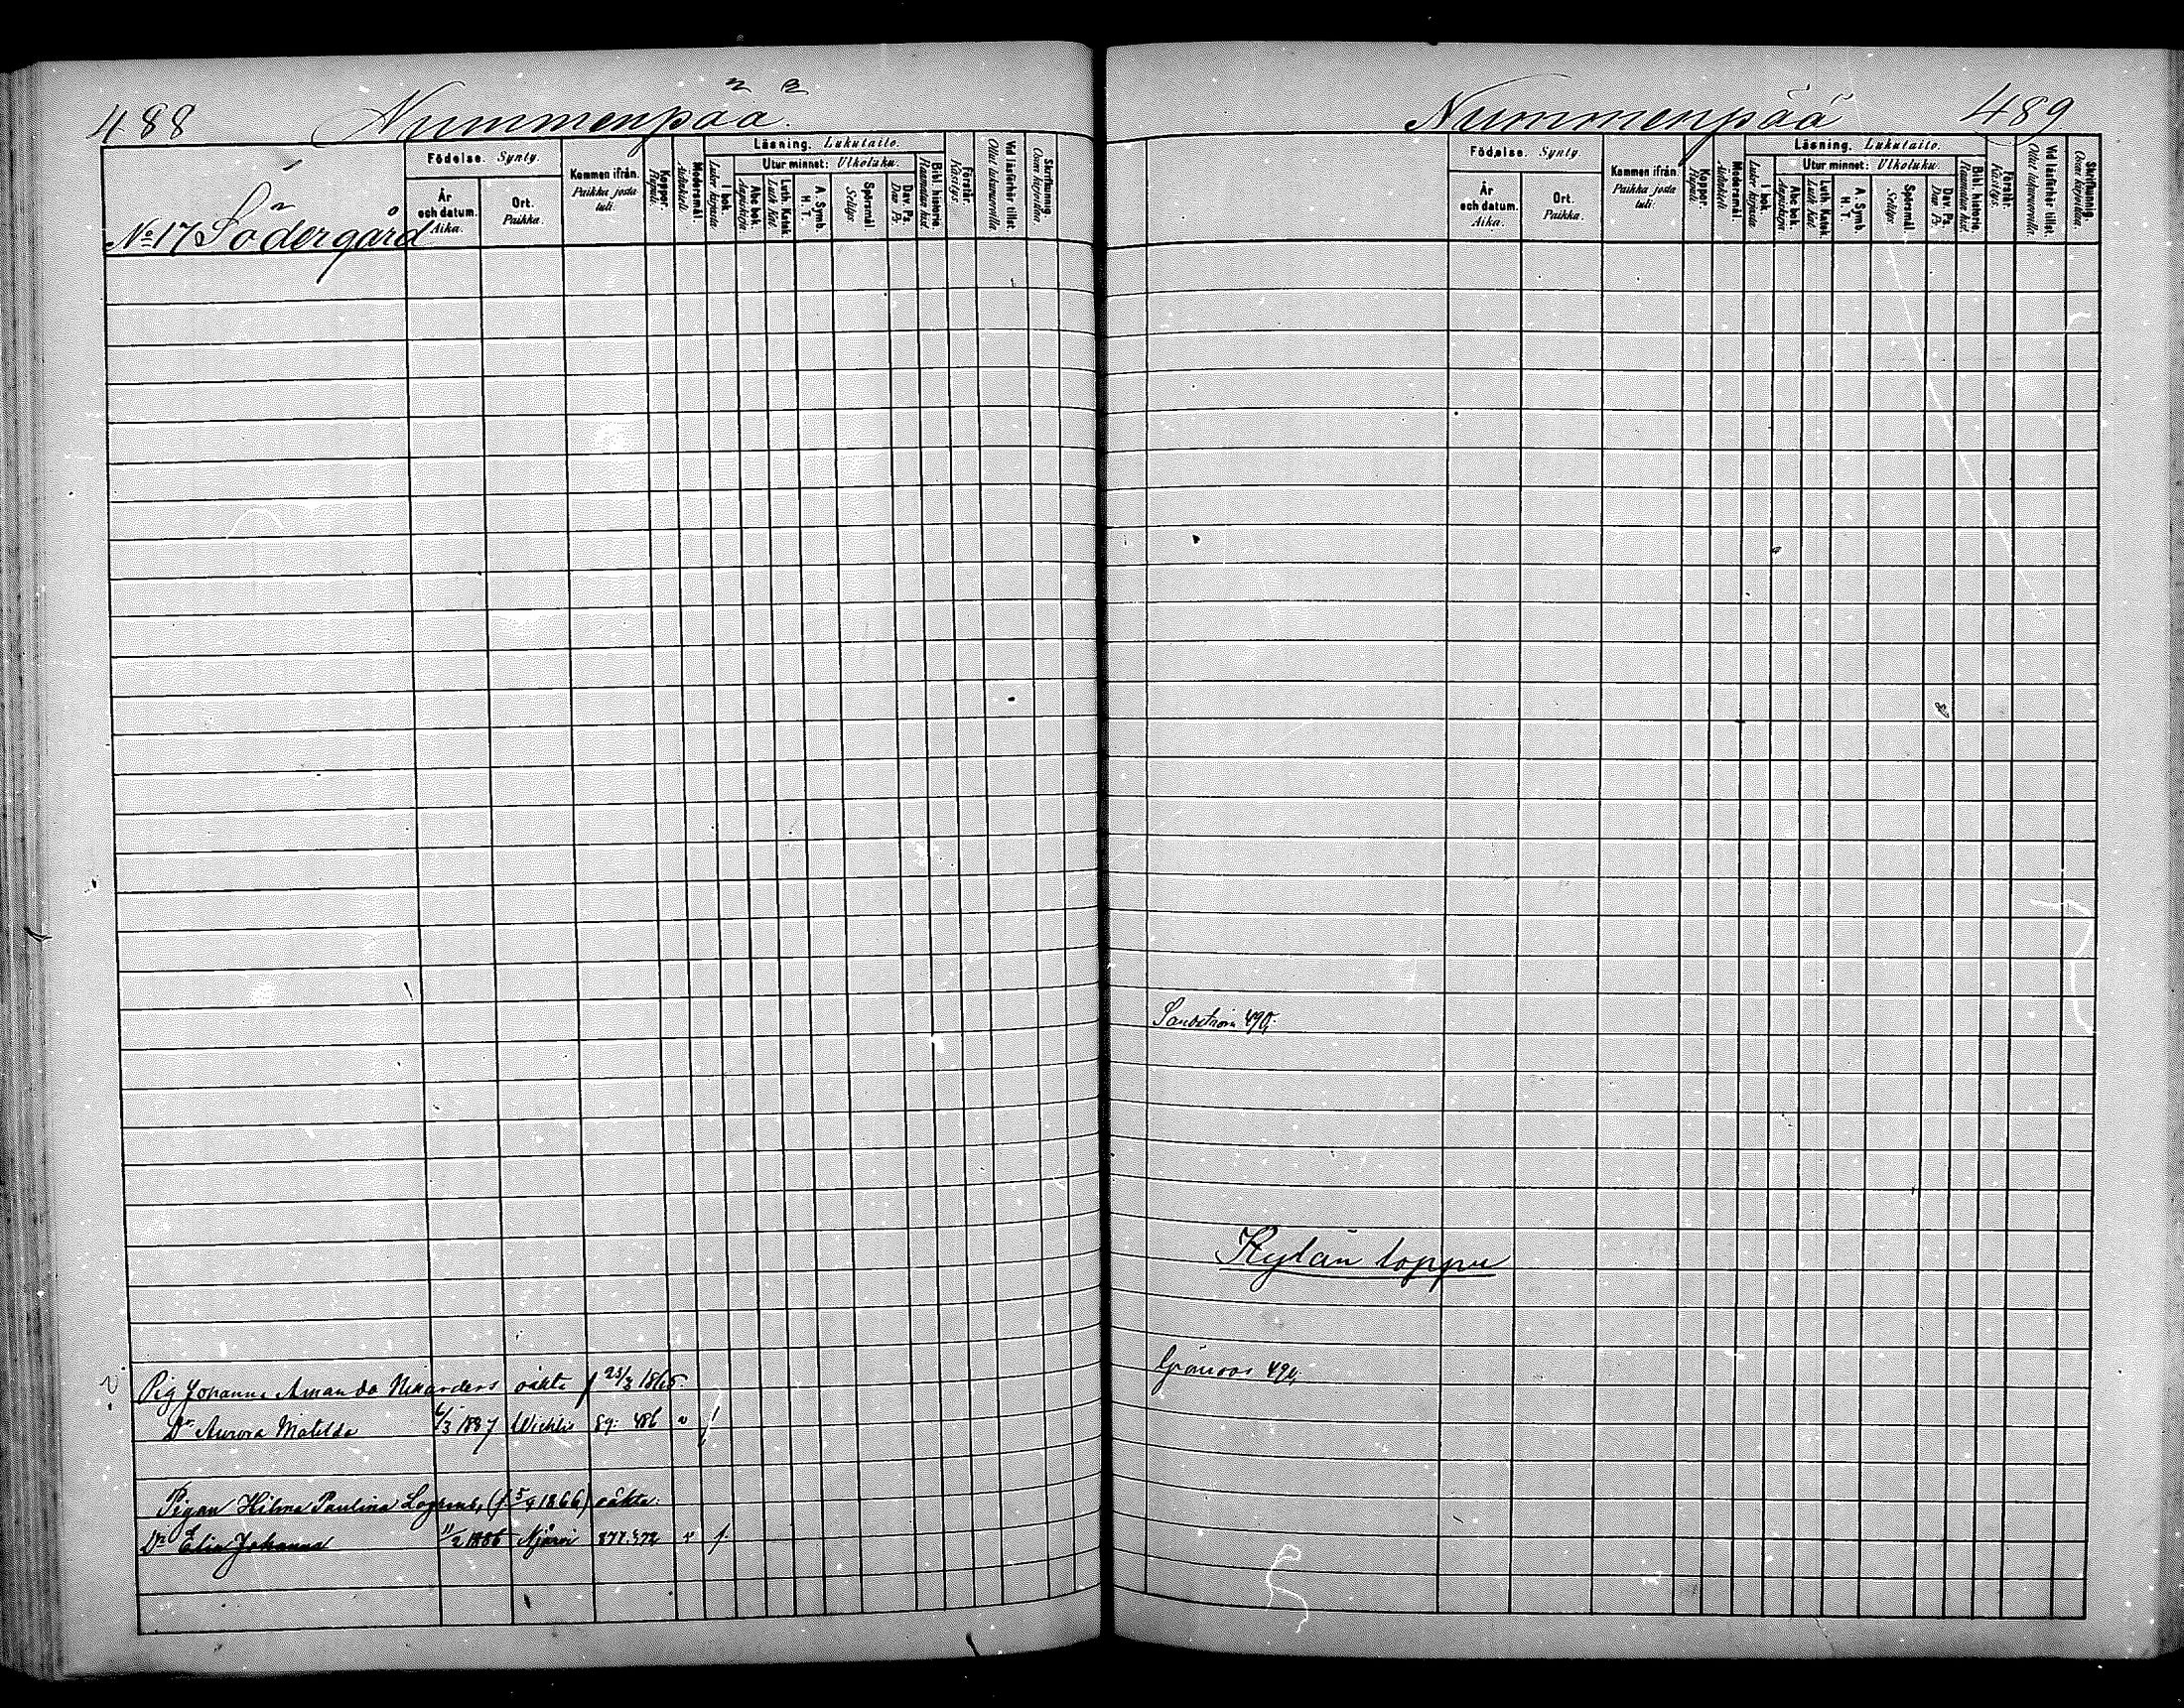 488 Nummenpää.
No 17 Södergård
Födelse. Synty.
År och datum. Aika.
Ort. Paikka.
Kommen ifrån. Paikka josta tuli.
Koppor. Rupuli.
Modersmål. Äidinkieli.
Läsning. Lukutaito.
I bok. Lukee kirjasta.
Utur minnet: Ulkoluku.
Abc bok. Aapiskirja.
Luth. Katek. Luth. Kat.
A. Symb. H. T.
Spörsmål. Selitys.
Dav. Ps. Dav. Ps.
Bibl. historie. Raamatun hist.
Förstår. Käsitys.
Vid läsförhör tillst. Ollut lukuvuoroilla.
Skriftkunnig. Osaa kirjoittaa.
Pig Johanna Amanda oäkta f 23/3 1865.
Dr Aurora Matilda 6/3 1887 Wichtis 89. 486 v /
Pigan Hilma Paulina (f. 5/9 1866) oäkta:
Dr Elin Johanna 11/2 1886 877.572 v /.
Nummenpää 489
Födelse. Synty.
År och datum. Aika.
Ort. Paikka.
Kommen ifrån. Paikka josta tuli.
Koppor. Rupuli.
Modersmål. Äidinkieli.
Läsning. Lukutaito.
I bok. Lukee kirjasta.
Utur minnet: Ulkoluku
Abc bok. Aapiskirja.
Luth. Katek. Luth. Kat.
A. Symb. H. T.
Spörsmål. Selitys.
Dav. Ps. Dav. Ps.
Bibl. historie. Raamatun hist.
Förstår. Käsitys.
Vid läsförhör tillst. Ollut lukuvuoroilla.
Skriftkunnig. Osaa kirjoittaa.
Sandström 490.
Kylän loppu
Grönroos 494